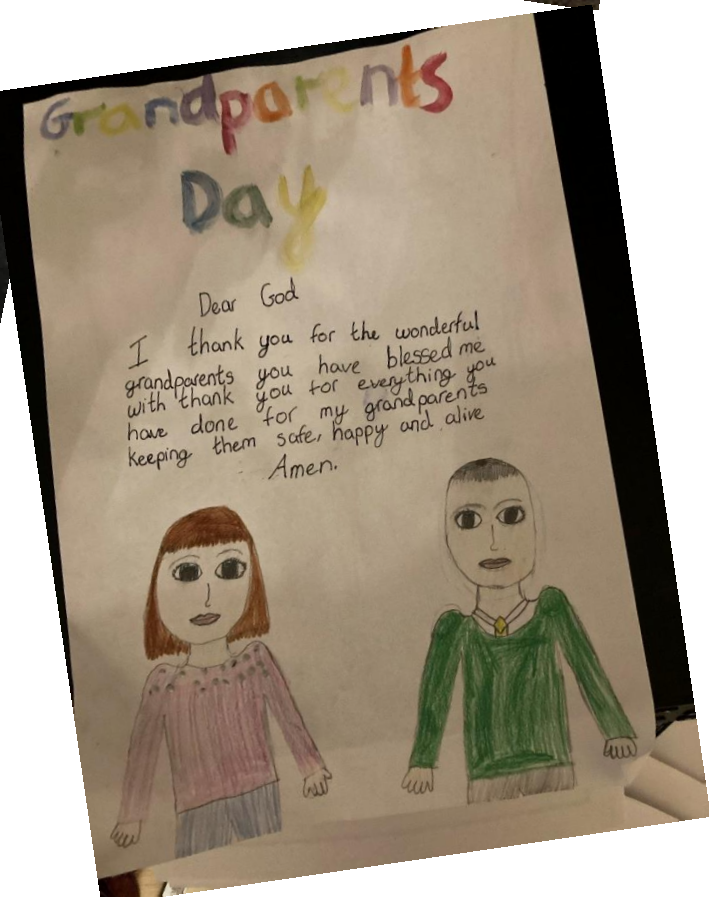 Grandparents
Day
Dear God
I thank you for the wonderful
grandparents you have blessed me
with thank you for everything you
have done for my grandparents
keeping them safe, happy and alive
Amen.